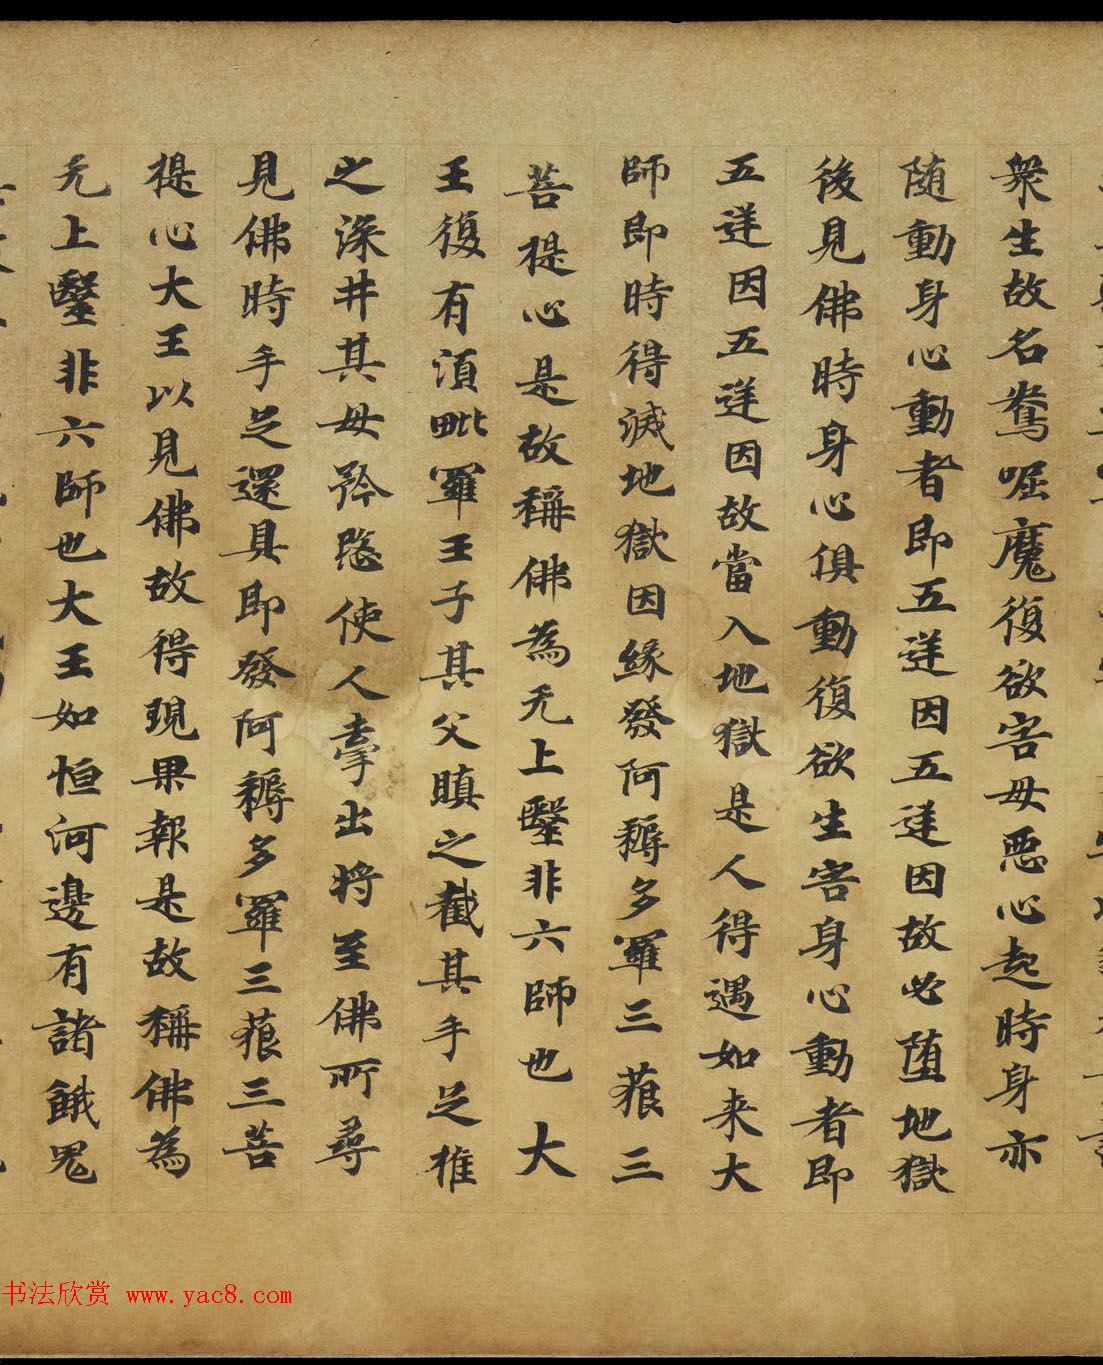 衆生故名鴦崛魔復欲害母惡心起時身亦
随動身心動者即五逆因五逆因故必堕地獄
後見佛時身心俱動復欲生害身心動者即
五逆因五逆因故當入地獄是人得遇如来大
師即時得滅地獄因緣發阿耨多羅三藐三
菩提心是故稱佛為无上毉非六師也大
王復有湏毗羅王子其父瞋之截其手足推
之深井其母矜愍使人牽出将至佛所尋
見佛時手足還具即發阿耨多羅三藐三菩
提心大王以見佛故得現果報是故稱佛為
无上毉非六師也大王如恒河邊有諸餓鬼
书法欣赏 www.yac8.com